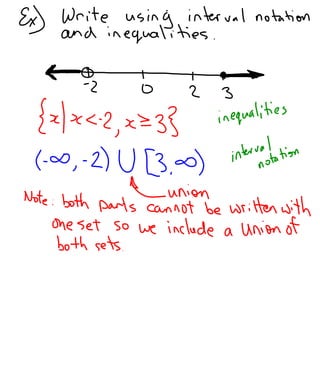 Ex) Write using interval notation
and inequalities.
-2 0 2 3
{x|x<-2, x≥3} inequalities
(-∞,-2) ∪ [3,∞) interval notation
union
Note: both parts cannot be written with
one set so we include a union of
both sets